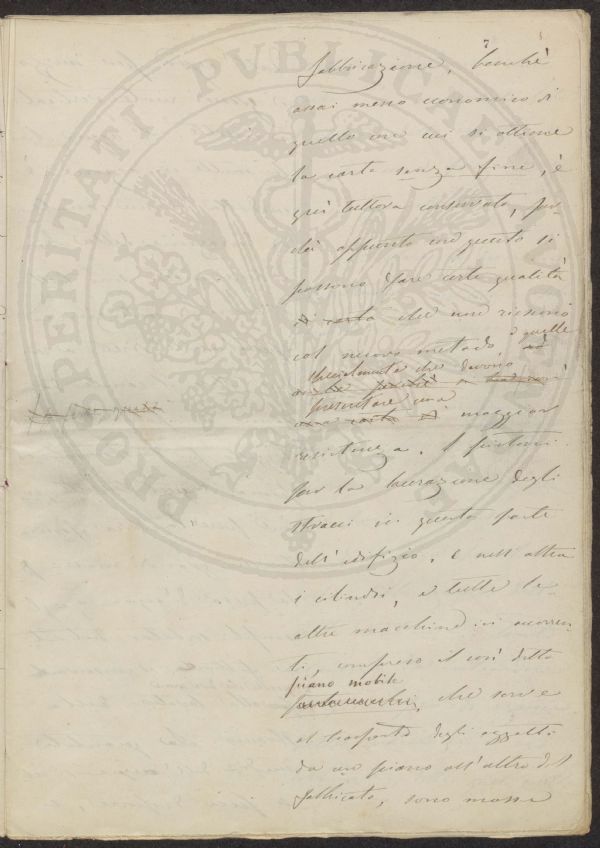 7
fabbricazione, benchè
assai meno economico di
quello con cui si ottiene
la carta senza fine, è
quì tuttora conservato, per-
chè appunto con questo si
possono fare certe qualità
di carta che non riescono
col nuovo metodo, quelle
specialmente che devono
presentare una
maggior
resistenza. I pistoni
per la lacerazione degli
stracci in questa parte
dell'edifizio, e nell'altra
i cilindri, e tutte le
altre macchine ivi occorren-
ti, compreso il così detto
piano mobile
che serve
al trasporto degli oggetti
da un piano all'altro del
fabbricato, sono mosse
PROSPERITATI PVBLICAE